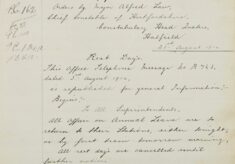 Order by Major Alfred Law,
Chief Constable of Hertfordshire
Constabulary Head Quarters
Hatfield
August
Rest Days.
This Office Telephone Message No R 763,
dated 5th August 1914,
is republished for general information:
Begins:
To All Superintendents.
All Officers on Annual Leave are to
return to their Stations, either tonight,
or by first train tomorrow morning.
All rest days are cancelled until
further notice